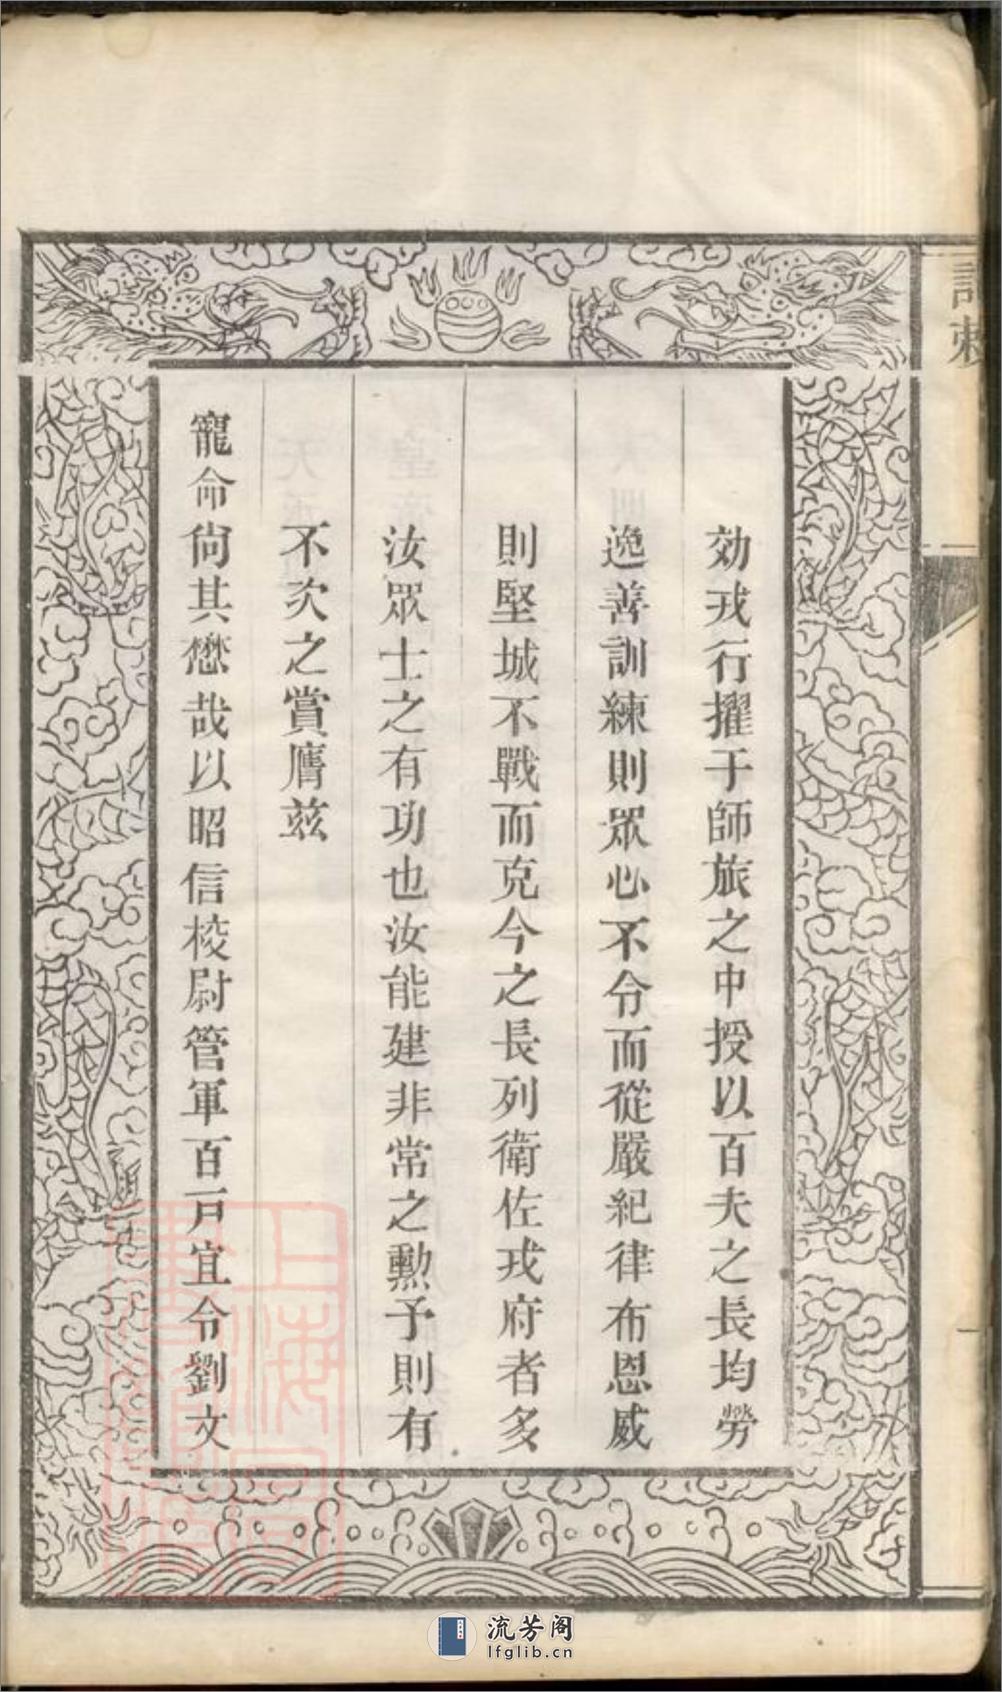 效戎行擢于師旅之中授以百夫之長均勞
逸善訓練則眾心不令而從嚴紀律布恩威
則堅城不戰而克今之長列衛佐戎府者多
汝眾士之有功也汝能建非常之勲予則有
不次之賞膺茲
寵命尚其懋哉以昭信校尉管軍百戶宜令劉文
一
上海圖書館藏
流芳阁
lfglib.cn